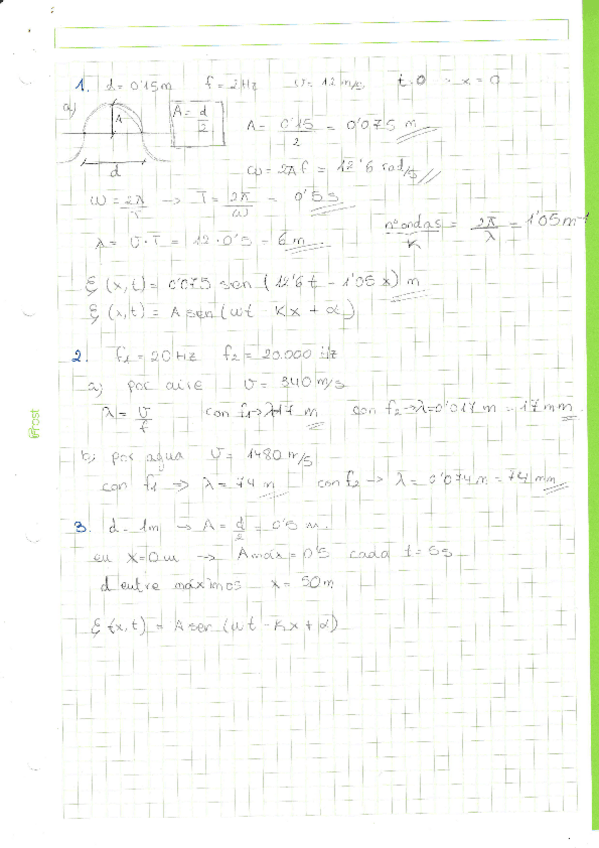 1. d = 0'15 m   f = 2 Hz   v = 12 m/s   t=0 → x = 0
a)   A   d   A = d/2   A = 0'15/2 = 0'075 m
ω = 2πf = 12'6 rad/s
ω = 2π/T → T = 2π/ω = 0'5 s
nº ondas/K = 2π/λ = 1'05 m⁻¹
λ = v·T = 12·0'5 = 6 m
ξ(x,t) = 0'075 sen (12'6 t - 1'05 x) m
ξ(x,t) = A sen (ωt - Kx + α)
2. f₁ = 20 Hz   f₂ = 20.000 Hz
a) por aire   v = 340 m/s
λ = v/f   con f₁→ λ=17 m   con f₂→λ=0'017 m = 17 mm.
b) por agua   v = 1480 m/s
con f₁ → λ = 74 m   con f₂ → λ = 0'074 m = 74 mm
3. d = 1m → A = d/2 = 0'5 m.
en x=0m → Amáx = 0'5 cada t = 5s
d entre máximos x = 50 m
ξ(x,t) = A sen (ωt - Kx + α)